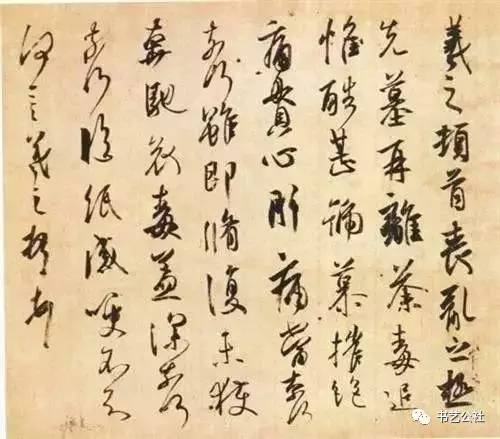 羲之頓首喪亂之極
先墓再離荼毒追
惟酷甚號慕摧絕
痛貫心肝痛當奈何
奈何雖即脩復未獲
奔馳哀毒益深奈何
奈何臨紙感哽不知
何言羲之頓首頓首
书艺公社